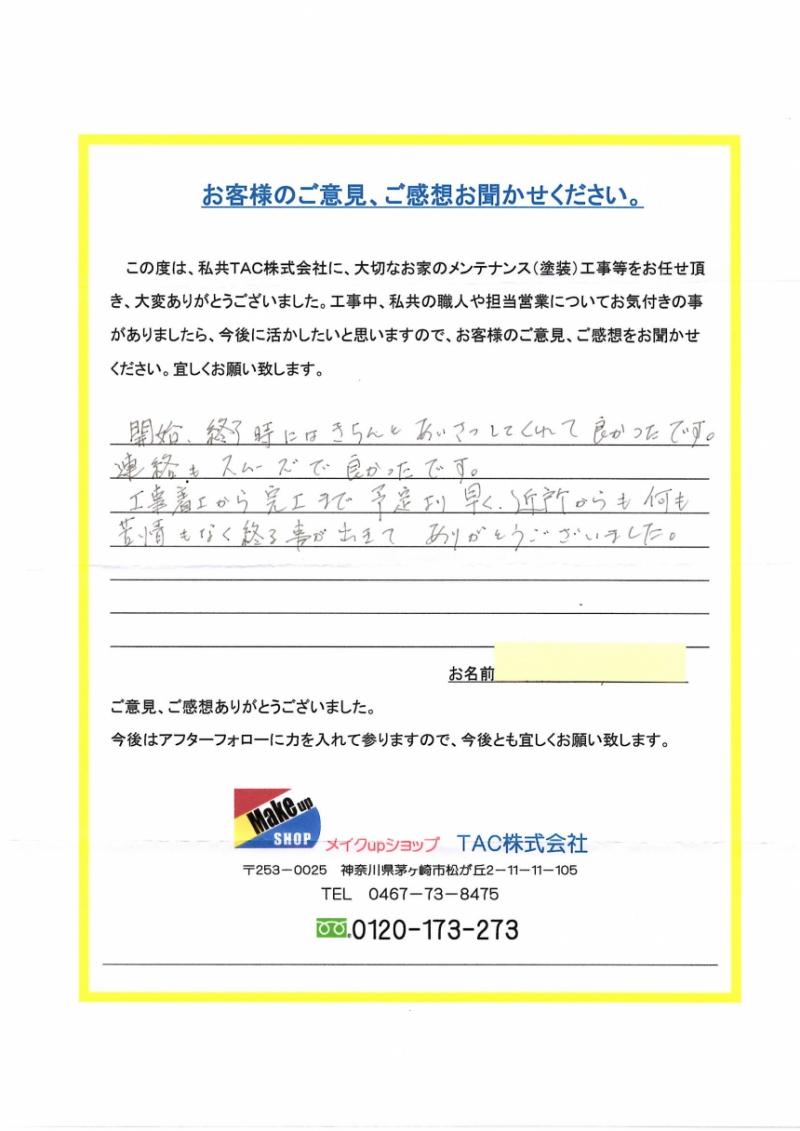 お客様のご意見、ご感想お聞かせください。
この度は、私共TAC株式会社に、大切なお家のメンテナンス(塗装)工事等をお任せ頂
き、大変ありがとうございました。工事中、私共の職人や担当営業についてお気付きの事
がありましたら、今後に活かしたいと思いますので、お客様のご意見、ご感想をお聞かせ
ください。宜しくお願い致します。
開始、終了時にはきちんとあいさつしてくれて良かったです。
連絡もスムーズで良かったです。
工事着工から完工まで予定より早く、近所からも何も
苦情もなく終る事が出来て ありがとうございました。
お名前
ご意見、ご感想ありがとうございました。
今後はアフターフォローに力を入れて参りますので、今後とも宜しくお願い致します。
Make up
SHOP
メイクupショップ TAC株式会社
〒253-0025 神奈川県茅ヶ崎市松が丘2-11-11-105
TEL 0467-73-8475
0120-173-273